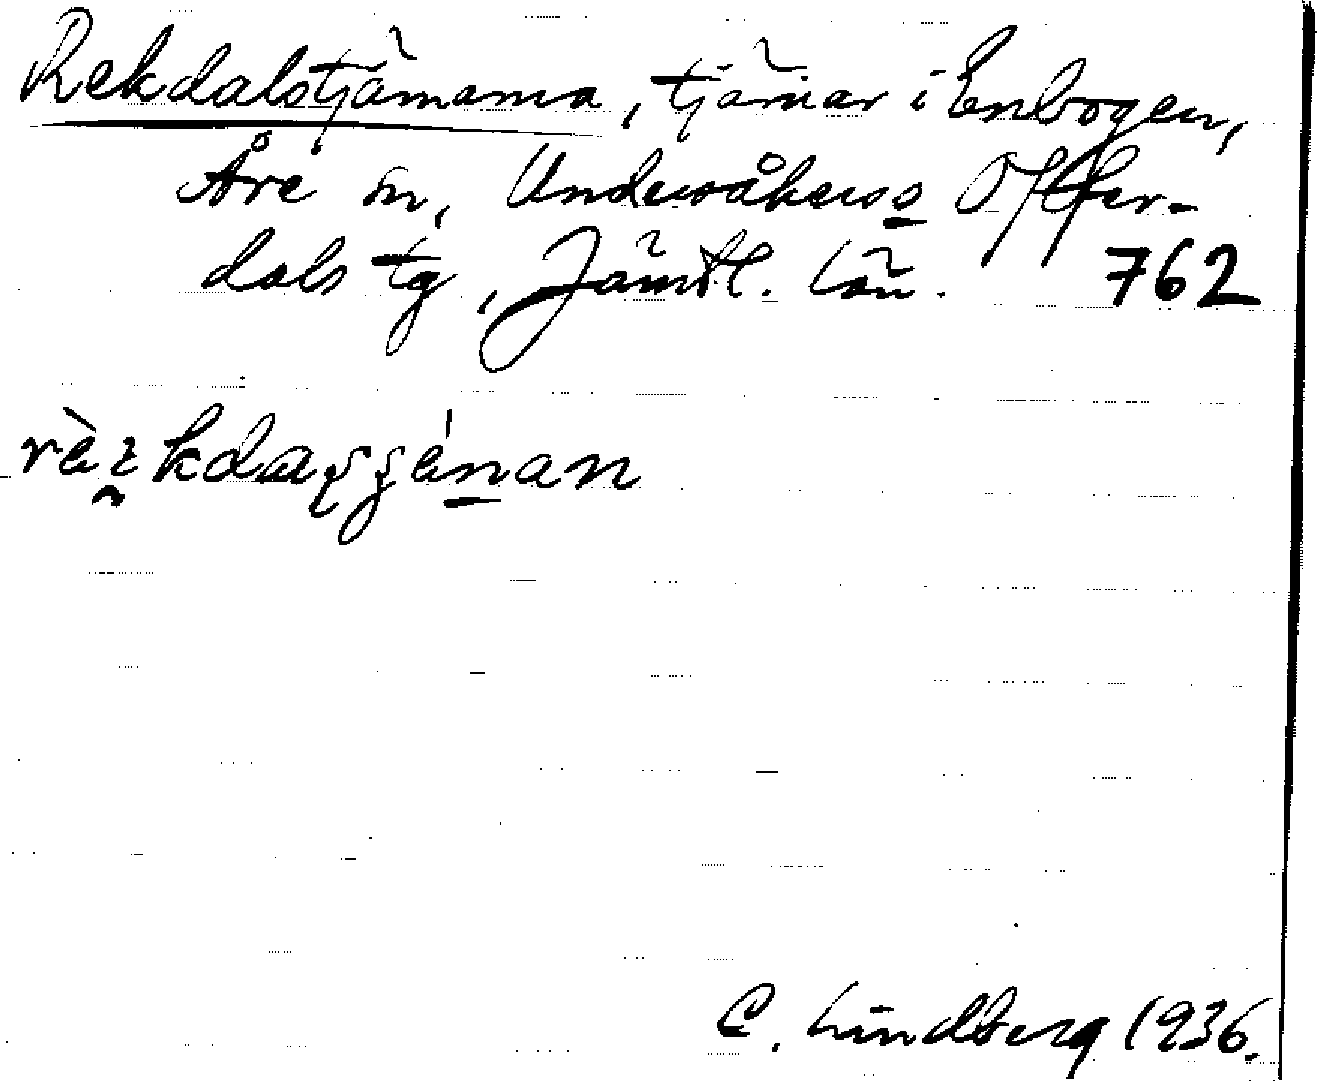 Rekdalstjärnarna, tjärnar i Enbogen,
Åre sn, Undersåkers o Offer-
dals tg, Jämtl. län. 762
C. Lindberg 1936.